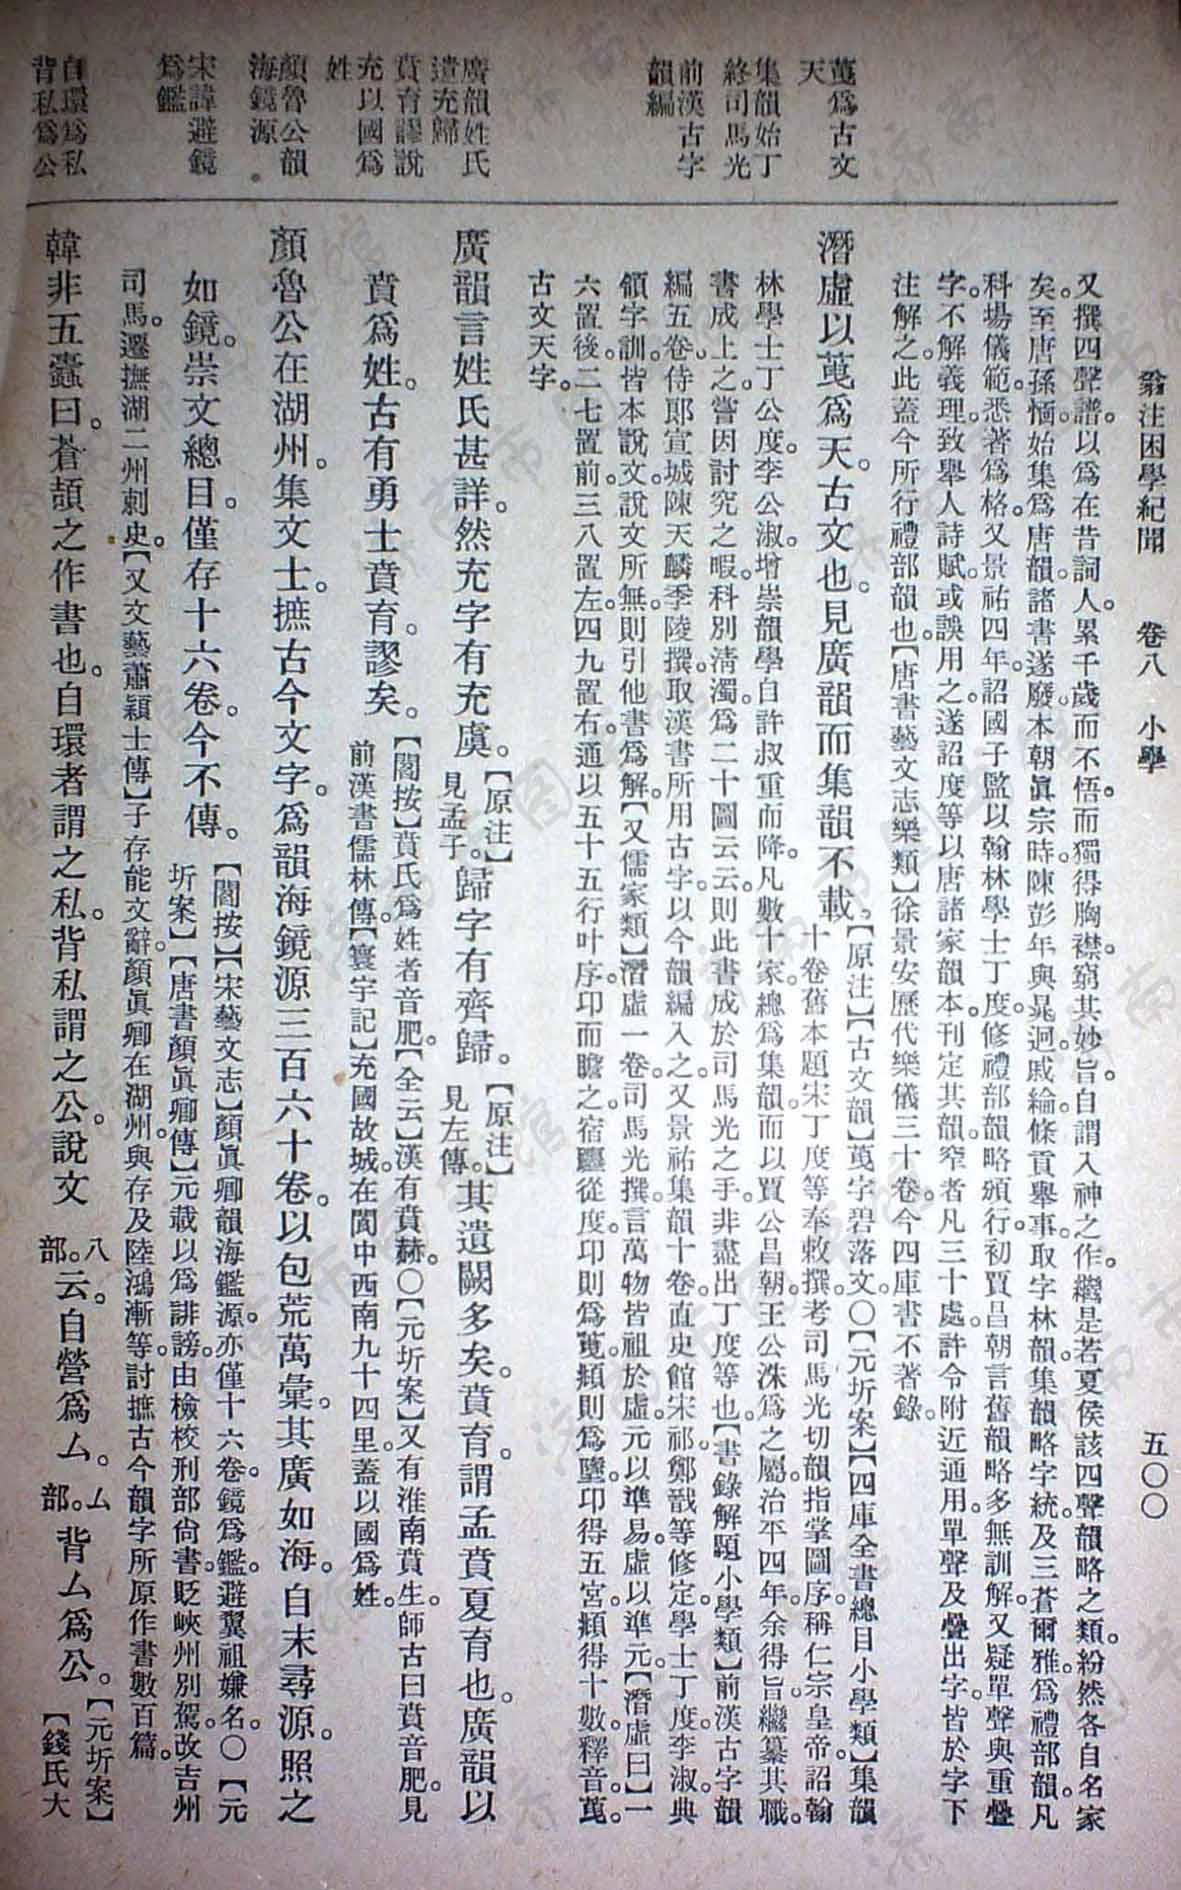 翁注困學紀聞　卷八　小學　五〇〇
又撰四聲譜。以爲在昔詞人。累千歲而不悟。而獨得胸襟。窮其妙旨。自謂入神之作。繼是若夏侯該四聲韻略之類。紛然各自名家
矣。至唐孫愐始集爲唐韻。諸書遂廢。本朝眞宗時。陳彭年與晁迥。戚綸。條貢舉事。取字林。韻集。韻略。字統。及三蒼爾雅。爲禮部韻。凡
科場儀範。悉著爲格。又景祐四年。詔國子監以翰林學士丁度。修禮部韻略頒行。初賈昌朝言舊韻略多無訓解。又疑單聲與重疊
字。不解義理。致舉人詩賦。或誤用之。遂詔度等以唐諸家韻本。刊定其韻。窄者凡三十處。許令附近通用。單聲及疊出字。皆於字下
注解之。此蓋今所行禮部韻也。【唐書藝文志樂類】徐景安歷代樂儀三十卷。今四庫書不著錄。
萬爲古文天
潛虛以萬爲天。古文也。見廣韻而集韻不載。【原注】【古文韻】萬字碧落文。〇【元圻案】【四庫全書總目小學類】集韻
十卷。舊本題宋丁度等奉敕撰。考司馬光切韻指掌圖序。稱仁宗皇帝。詔翰
集韻始丁終司馬光
林學士丁公度。李公淑。增崇韻學。自許叔重而降。凡數十家。總爲集韻。而以賈公昌朝。王公洙爲之屬。治平四年。余得旨。繼纂其職。
書成上之。嘗因討究之暇。科別淸濁。爲二十圖云云。則此書成於司馬光之手。非盡出丁度等也。【書錄解題小學類】前漢古字韻
前漢古字韻編
編五卷。侍郞宣城陳天麟季陵撰。取漢書所用古字。以今韻編入之。又景祐集韻十卷。直史館宋祁。鄭戩等修定。學士丁度。李淑。典
領字訓。皆本說文。說文所無。則引他書爲解。【又儒家類】潛虛一卷。司馬光撰。言萬物皆祖於虛。元以準易。虛以準元。【潛虛曰】一
六置後。二七置前。三八置左。四九置右。通以五十五行叶序。卬而瞻之。宿躔從度。卬則爲萬。頫則爲墬。卬得五宮。頫得十數。釋音。萬。
古文天字。
廣韻姓氏遺充歸
廣韻言姓氏甚詳。然充字有充虞。【原注】見孟子。歸字有齊歸。【原注】見左傳。其遺闕多矣。賁育。謂孟賁夏育也。廣韻以
賁育謬說
賁爲姓。古有勇士賁育。謬矣。【閻按】賁氏爲姓者音肥。【全云】漢有賁赫。〇【元圻案】又有淮南賁生。師古曰賁音肥。見
充以國爲姓
前漢書儒林傳。【寰宇記】充國故城。在閬中西南九十四里。蓋以國爲姓。
顏魯公韻海鏡源
顏魯公在湖州。集文士。摭古今文字。爲韻海鏡源三百六十卷。以包荒萬彙。其廣如海。自末尋源。照之
宋諱避鏡爲鑑
如鏡。崇文總目。僅存十六卷。今不傳。【閻按】【宋藝文志】顏眞卿韻海鑑源。亦僅十六卷。鏡爲鑑。避翼祖嫌名。〇【元
圻案】【唐書顏眞卿傳】元載以爲誹謗。由檢校刑部尙書。貶峽州別駕。改吉州
司馬。遷撫湖二州刺史。【又文藝蕭穎士傳】子存能文辭。顏眞卿在湖州。與存及陸鴻漸等。討摭古今韻字所原作書數百篇。
自環爲私背私爲公
韓非五蠹曰。蒼頡之作書也。自環者謂之私。背私謂之公。說文八部。云。自營爲厶。厶部。背厶爲公。【元圻案】【錢氏大